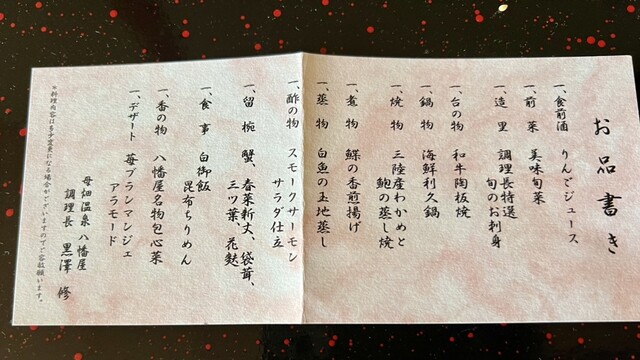 お品書き
一、食前酒 りんごジュース
一、前菜 美味旬菜
一、造里 調理長特選
旬のお刺身
一、台の物 和牛陶板焼
一、鍋物 海鮮利久鍋
一、焼物 三陸産わかめと
鮑の蒸し焼
一、煮物 鰈の香煎揚げ
一、蒸物 白魚の玉地蒸し
一、酢の物 スモークサーモン
サラダ仕立
一、留椀 蟹、春菜新丈、袋茸、
三ツ葉、花麩
一、食事 白御飯
昆布ちりめん
一、香の物 八幡屋名物包心菜
一、デザート 苺ブランマンジェ
アラモード
母畑温泉八幡屋
調理長 黒澤 修
※料理内容は多少変更になる場合がございますのでご容赦願います。